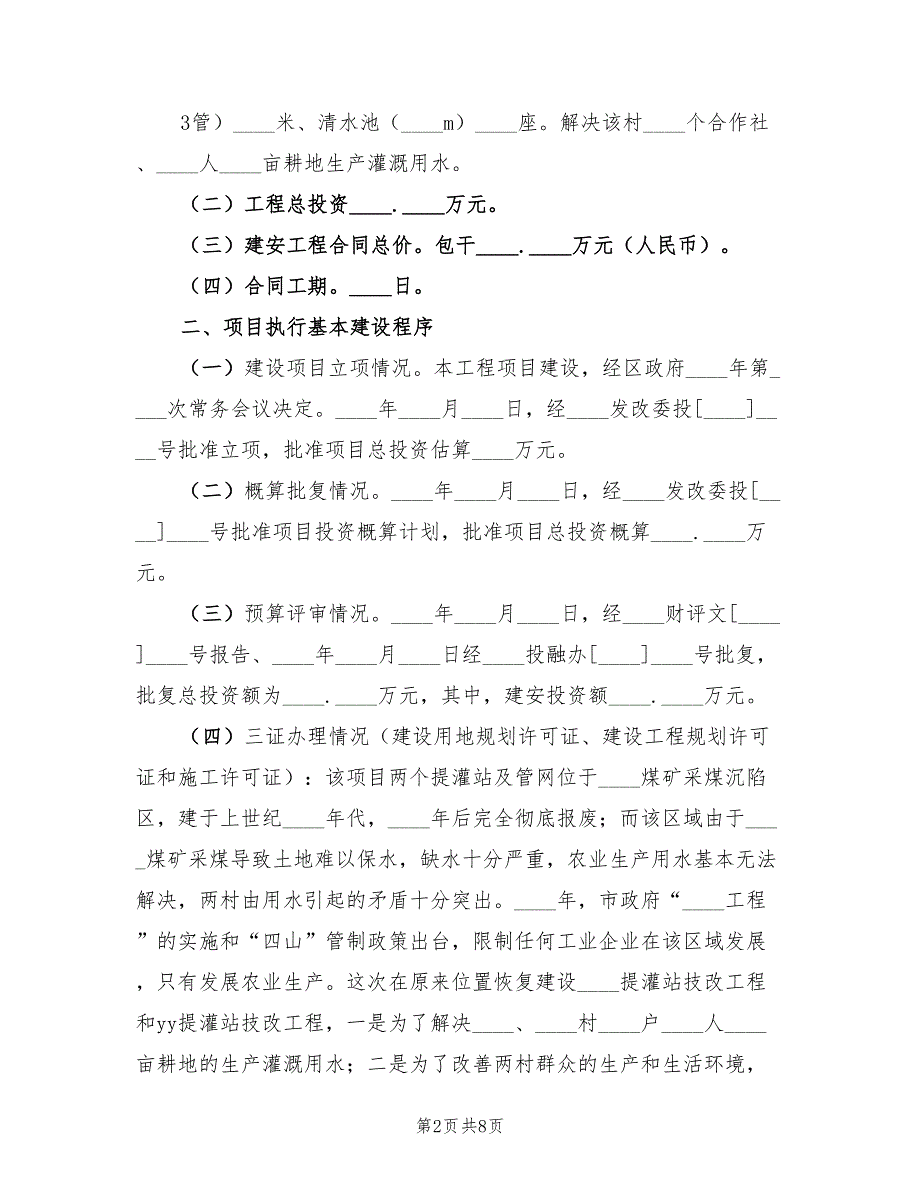 3管）____米、清水池（____m）____座。解决该村____个合作社
、____人____亩耕地生产灌溉用水。
（二）工程总投资____.____万元。
（三）建安工程合同总价。包干____.____万元（人民币）。
（四）合同工期。____日。
二、项目执行基本建设程序
（一）建设项目立项情况。本工程项目建设，经区政府____年第_
___次常务会议决定。____年____月____日，经____发改委投[____]__
__号批准立项，批准项目总投资估算____万元。
（二）概算批复情况。____年____月____日，经____发改委投[__
__]____号批准项目投资概算计划，批准项目总投资概算____.____万
元。
（三）预算评审情况。____年____月____日，经____财评文[____
]____号报告、____年____月____日经____投融办[____]____号批复，
批复总投资额为____.____万元，其中，建安投资额____.____万元。
（四）三证办理情况（建设用地规划许可证、建设工程规划许可
证和施工许可证）：该项目两个提灌站及管网位于____煤矿采煤沉陷
区，建于上世纪____年代，____年后完全彻底报废；而该区域由于___
_煤矿采煤导致土地难以保水，缺水十分严重，农业生产用水基本无法
解决，两村由用水引起的矛盾十分突出。____年，市政府“____工程
”的实施和“四山”管制政策出台，限制任何工业企业在该区域发展
，只有发展农业生产。这次在原来位置恢复建设____提灌站技改工程
和yy提灌站技改工程，一是为了解决____、____村____户____人____
亩耕地的生产灌溉用水；二是为了改善两村群众的生产和生活环境，
第2页 共8页